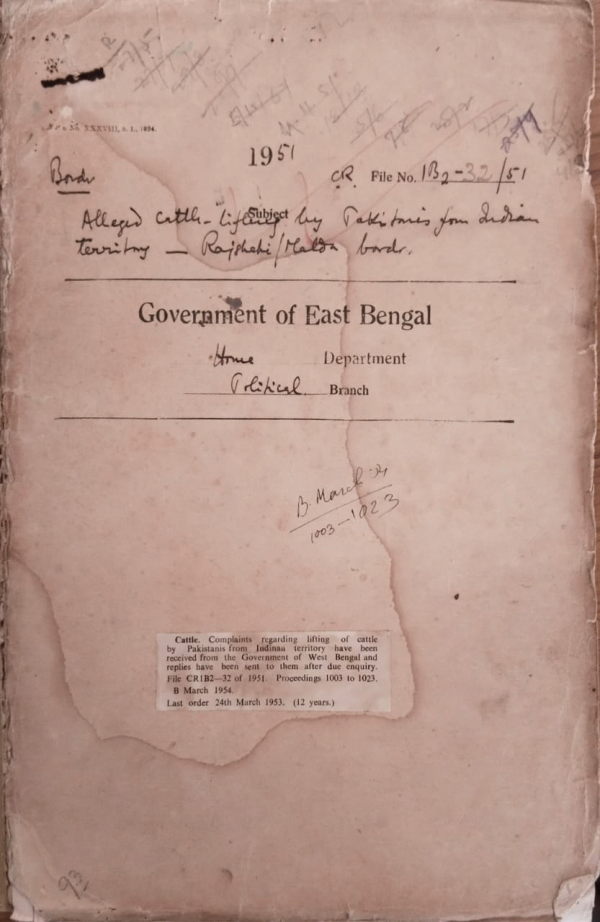 XXXVIII, s. I., 1894.
1951
Bordr
CR. File No. 1B2-32/51
Subject
Alleged cattle-lifting by Pakistanis from Indian
territory — Rajshahi/Malda bordr.
Government of East Bengal
Home Department
Political Branch
B. March 54
1003-1023
Cattle. Complaints regarding lifting of cattle
by Pakistanis from Indinan territory have been
received from the Government of West Bengal and
replies have been sent to them after due enquiry.
File CR1B2—32 of 1951. Proceedings 1003 to 1023.
B March 1954.
Last order 24th March 1953. (12 years.)